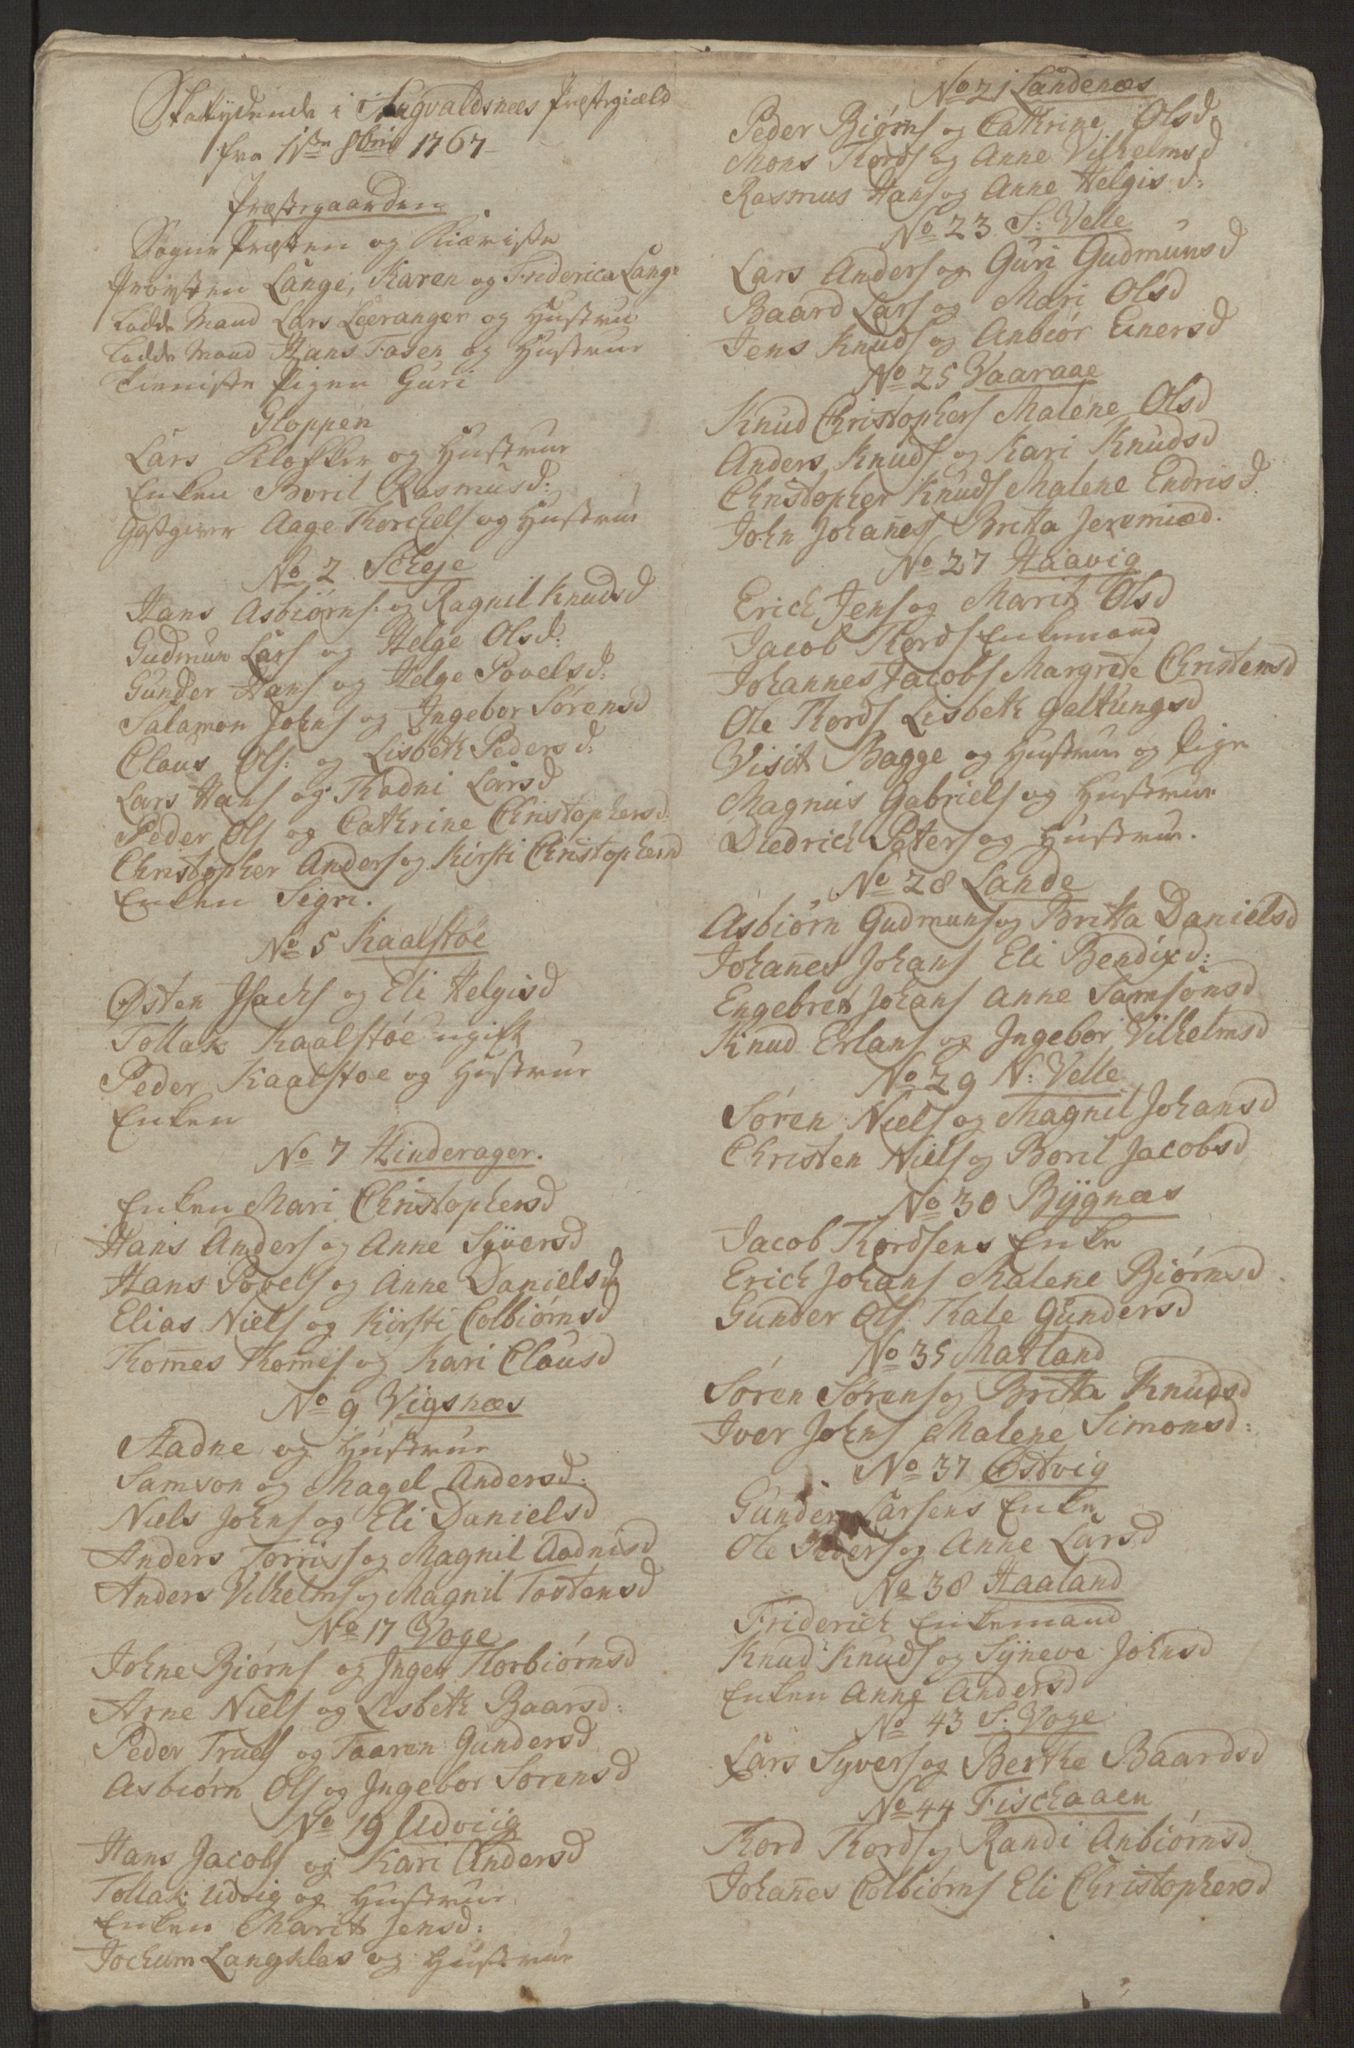 Skatydende i Augvaldsnæs Præstegiæld
fra 1ste 8bris 1767
Præstegaarden
Sogne Præsten og Kiæriste
Provsten Lange, Karen og Friderica Lange
Ladde Mand Lars Leeranger og Hustrue
Ladde Mand Hans Fosen og Hustrue
Tieniste Pigen Guri
Gloppen
Lars Klokker og Hustrue
Enken Boril Rasmusd:
Gastgiver Aage Thorchels og Hustrue
No 2 Scheje
Hans Asbiørns: og Ragnil Knudsd
Gudmun Lars og Helge Olsd:
Gunder Hans og Helge Povelsd:
Salamon Johns og Ingebor Sørensd
Claus Ols: og Lisbeth Pedersd:
Lars Hans og Thadni Larsd
Peder Ols og Cathrine Christophersd:
Christopher Anders og Kirsti Christophersd
Enken Sigri.
No 5 Kaalstøe
Østen Isachs og Eli Helgisd
Tollak Kaalstøe ugift
Peder Kaalstoe og Hustrue
Enken
No 7 Hinderager.
Enken Mari Christophersd
Hans Anders og Anne Syversd
Hans Povels og Anne Danielsd
Elias Niels og Kirsti Colbiørnsd
Thom̄es Thom̄es og Kari Clausd
No 9 Vigsnæs
Aadne og Hustrue
Samson og Magel Andersd:
Niels Johns og Eli Danielsd
Anders Torris og Magnil Aadnisd
Anders Vilhelms og Magnil Tostensd
No 17 Voge
Johne Biørns og Inger Thorbiørnsd
Arne Niels og Lisbeth Baarsd:
Peder Truls og Taaren Gundersd
Asbiørn Ols og Ingebor Sørensd
No 19 Udviig
Hans Jacobs og Kari Andersd
Tollak Udvig og Hustrue
Enken Marit Jensd:
Jochum Langhlas og Hustrue
No 21 Landenæs
Peder Biørns og Cathrine Olsd:
Mons Thords og Anne Vilhelmsd
Rasmus Hans og Anne Helgisd:
No 23 S: Velle
Lars Anders og Guri Gudmunsd
Baard Lars og Mari Olsd
Jens Knuds og Anbiør Einersd
No 25 Vaaraae
Knud Christophers Malene Olsd
Anders Knuds og Kari Knudsd
Christopher Knuds Malene Endrisd:
John Johan̄es Britta Jeremiæd.
No 27 Haavig
Erich Jens og Marit Olsd
Jacob Thords Enkemand
Johannes Jacobs Margrede Christensd
Ole Thords Lisbeth Galtungsd
Visit Bagge og Hustrue og Pige
Magnus Gabriels og Hustrue
Diedrich Peters og Hustrue.
No 28 Lande
Asbiørn Gudmuns og Britta Danielsd
Johan̄es Johans Eli Bendixd:
Engebret Johans Anne Samsonsd
Knud Erlans og Ingebor Vilhelmsd
No 29 N: Velle
Søren Niels og Magnil Johansd
Christen Niels og Boril Jacobsd
No 30 Bygnæs
Jacob Thordsens Enke
Erich Johans Malene Biørnsd
Gunder Ols Kale Gundersd
No 35 Matland
Søren Sørens og Britta Knudsd
Iver Johns Malene Simonsd:
No 37 Østvig
Gunder Larsens Enke
Ole Ivers og Anne Larsd
No 38 Haaland
Friderich Enkemand
Knud Knuds og Syneve Johnsd
Enken Anne Andersd
No 43 S: Voge
Lars Syvers og Berthe Baardsd
No 44 Fischaaen
Thord Thords og Randi Anbiørnsd
Johan̄es Colbiørns Eli Christophersd